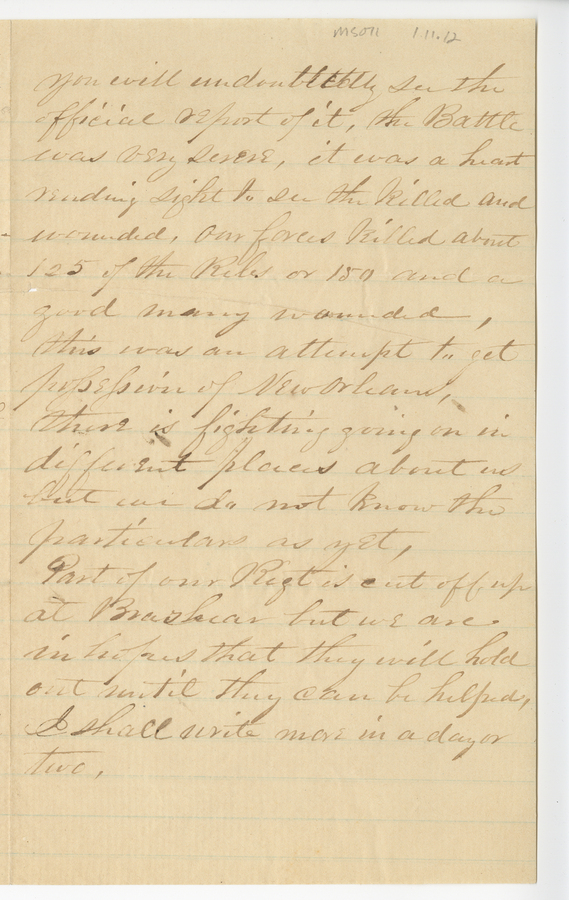 MS011 1.11.12
you will undoubttetly see the
official report of it, the Battle
was very severe, it was a heart
rending sight to see the killed and
wounded, our forces killed about
125 of the Rebs or 150 and a
good many wounded,
this was an attempt to get
possession of New Orleans,
there is fighting going on in
different places about us
but we do not know the
particulars as yet,
Part of our Regt is cut off up
at Brashear but we are
in hopes that they will hold
out until they can be helped,
I shall write more in a day or
two,